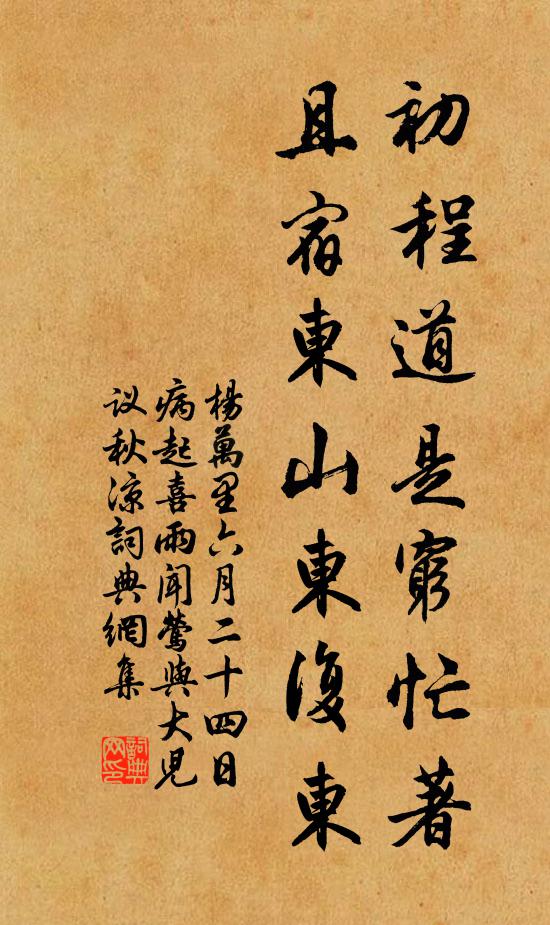 初程道是窮忙著
且宿東山東復東
楊萬里六月二十四日
病起喜雨聞鶯與大兒
议秋涼詞典網集
詞典
网印